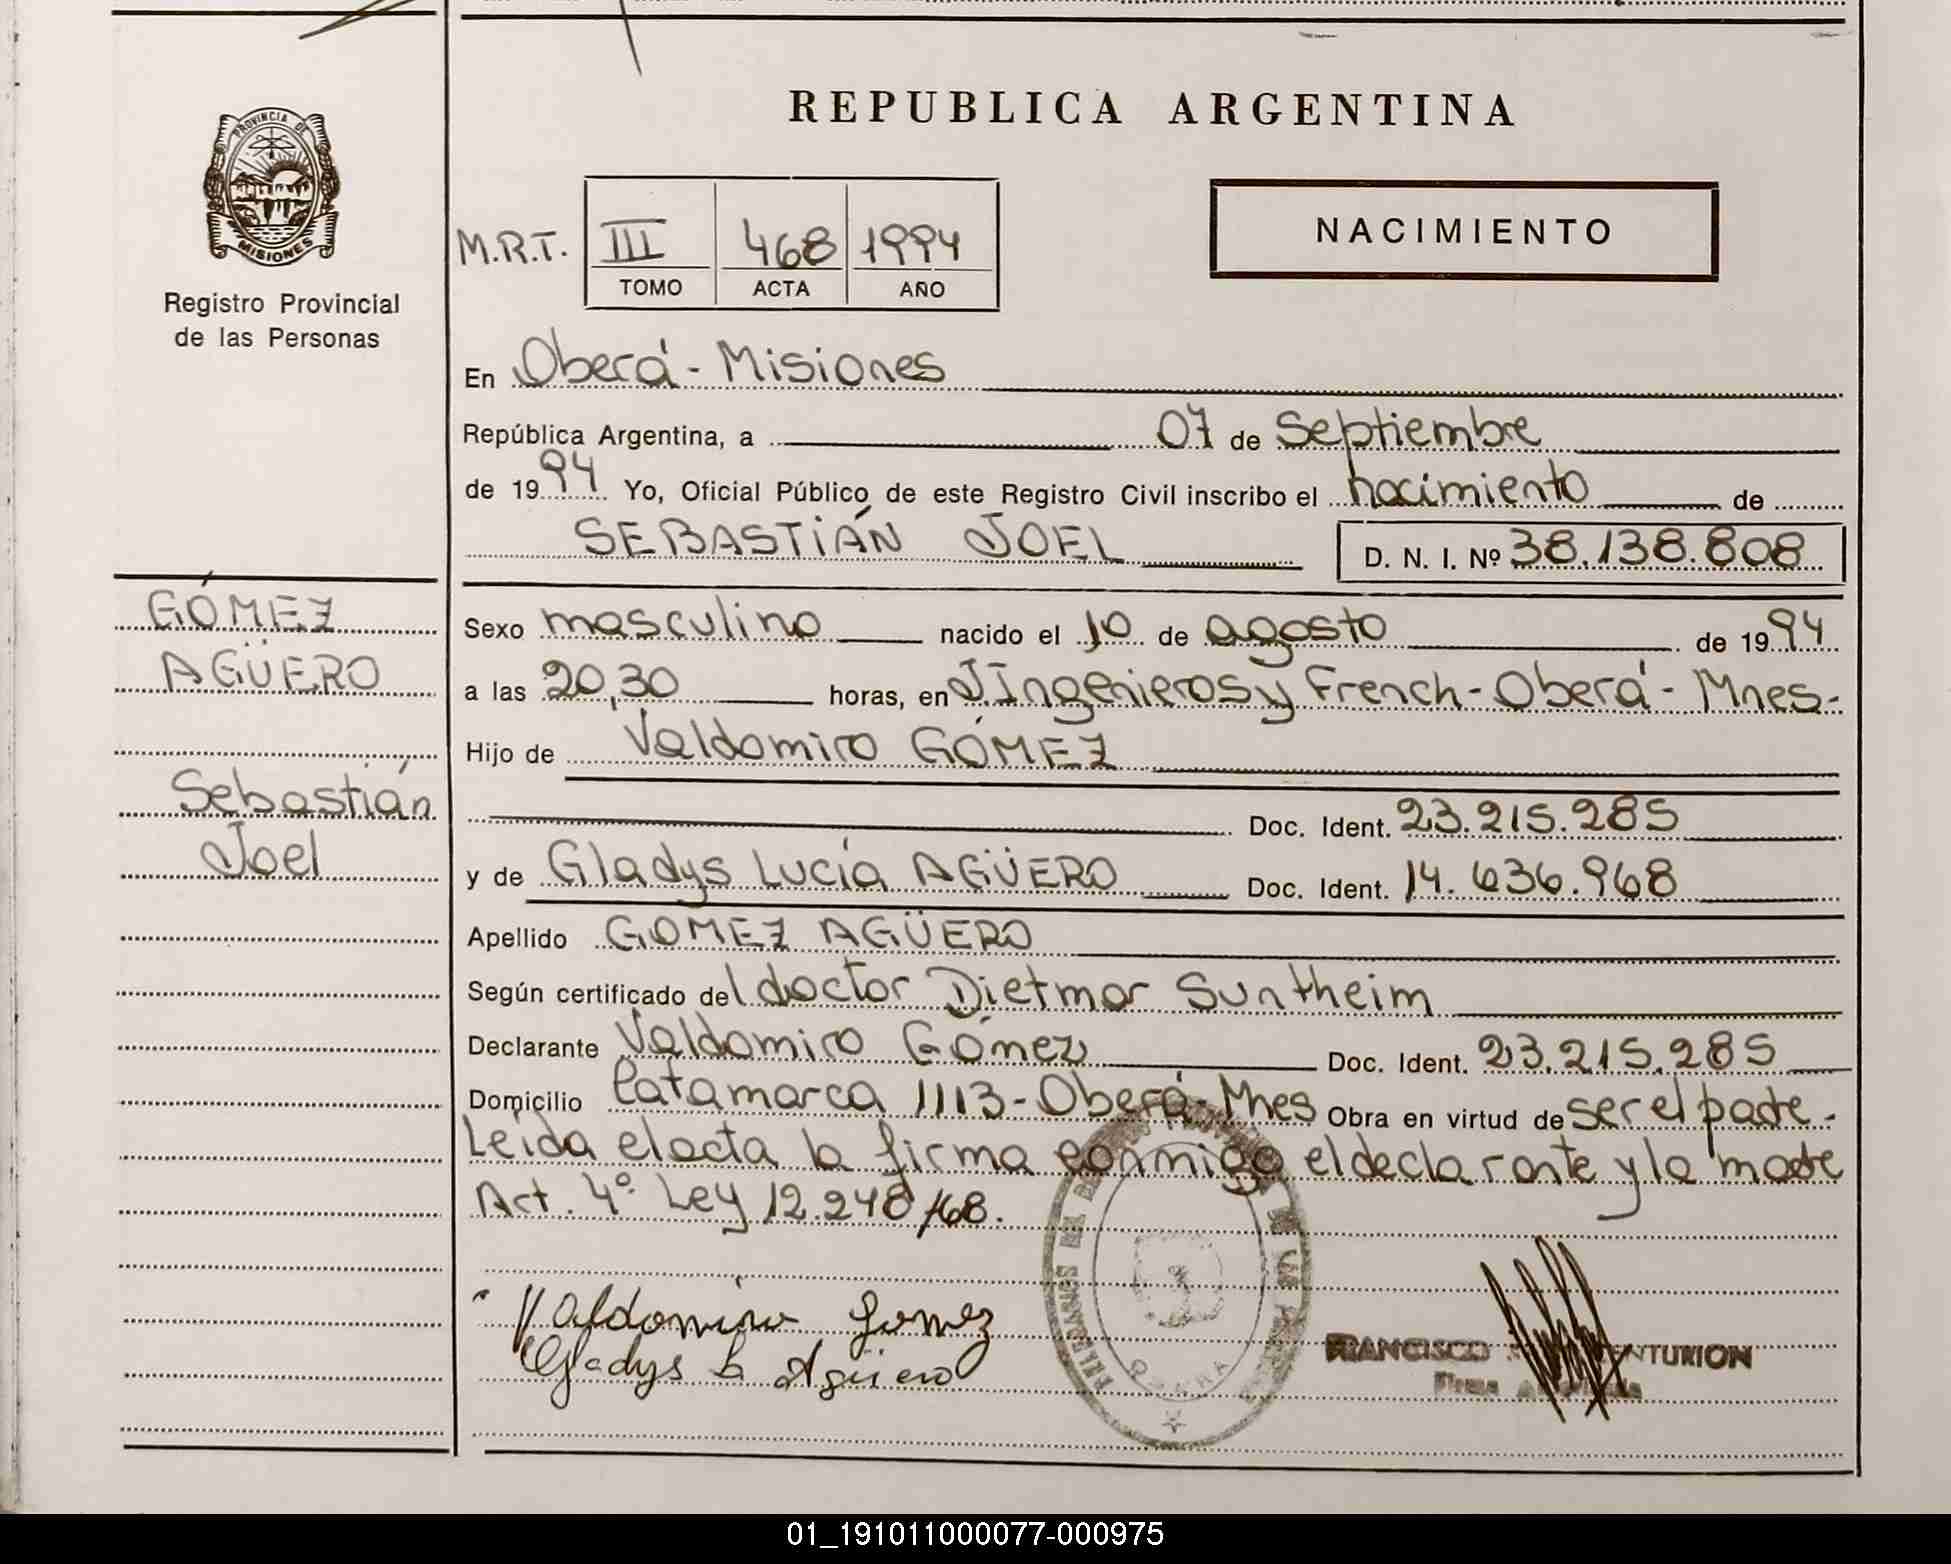 REPUBLICA ARGENTINA
PROVINCIA DE
MISIONES
Registro Provincial
de las Personas
M.R.T. III 468 1994
TOMO ACTA AÑO
NACIMIENTO
En Oberá - Misiones
República Argentina, a 07 de Septiembre
de 1994 Yo, Oficial Público de este Registro Civil inscribo el nacimiento de
SEBASTIÁN JOEL D. N. I. Nº 38.138.808
GÓMEZ
AGÜERO
Sebastián
Joel
Sexo masculino nacido el 10 de agosto de 1994
a las 20,30 horas, en J.Ingenieros y French - Oberá - Mnes-
Hijo de Valdomiro GÓMEZ
Doc. Ident. 23.215.285
y de Gladys Lucía AGÜERO Doc. Ident. 14.636.968
Apellido GOMEZ AGÜERO
Según certificado del doctor Dietmar Suntheim
Declarante Valdomiro Gómez Doc. Ident. 23.215.285
Domicilio Catamarca 1113 - Oberá - Mnes Obra en virtud de ser el padre.
Leída el acta la firma conmigo el declarante y la madre
Art. 4º Ley 12.248/68.
Valdomiro Gomez
Gladys L Agüero
FRANCISCO
01_191011000077-000975